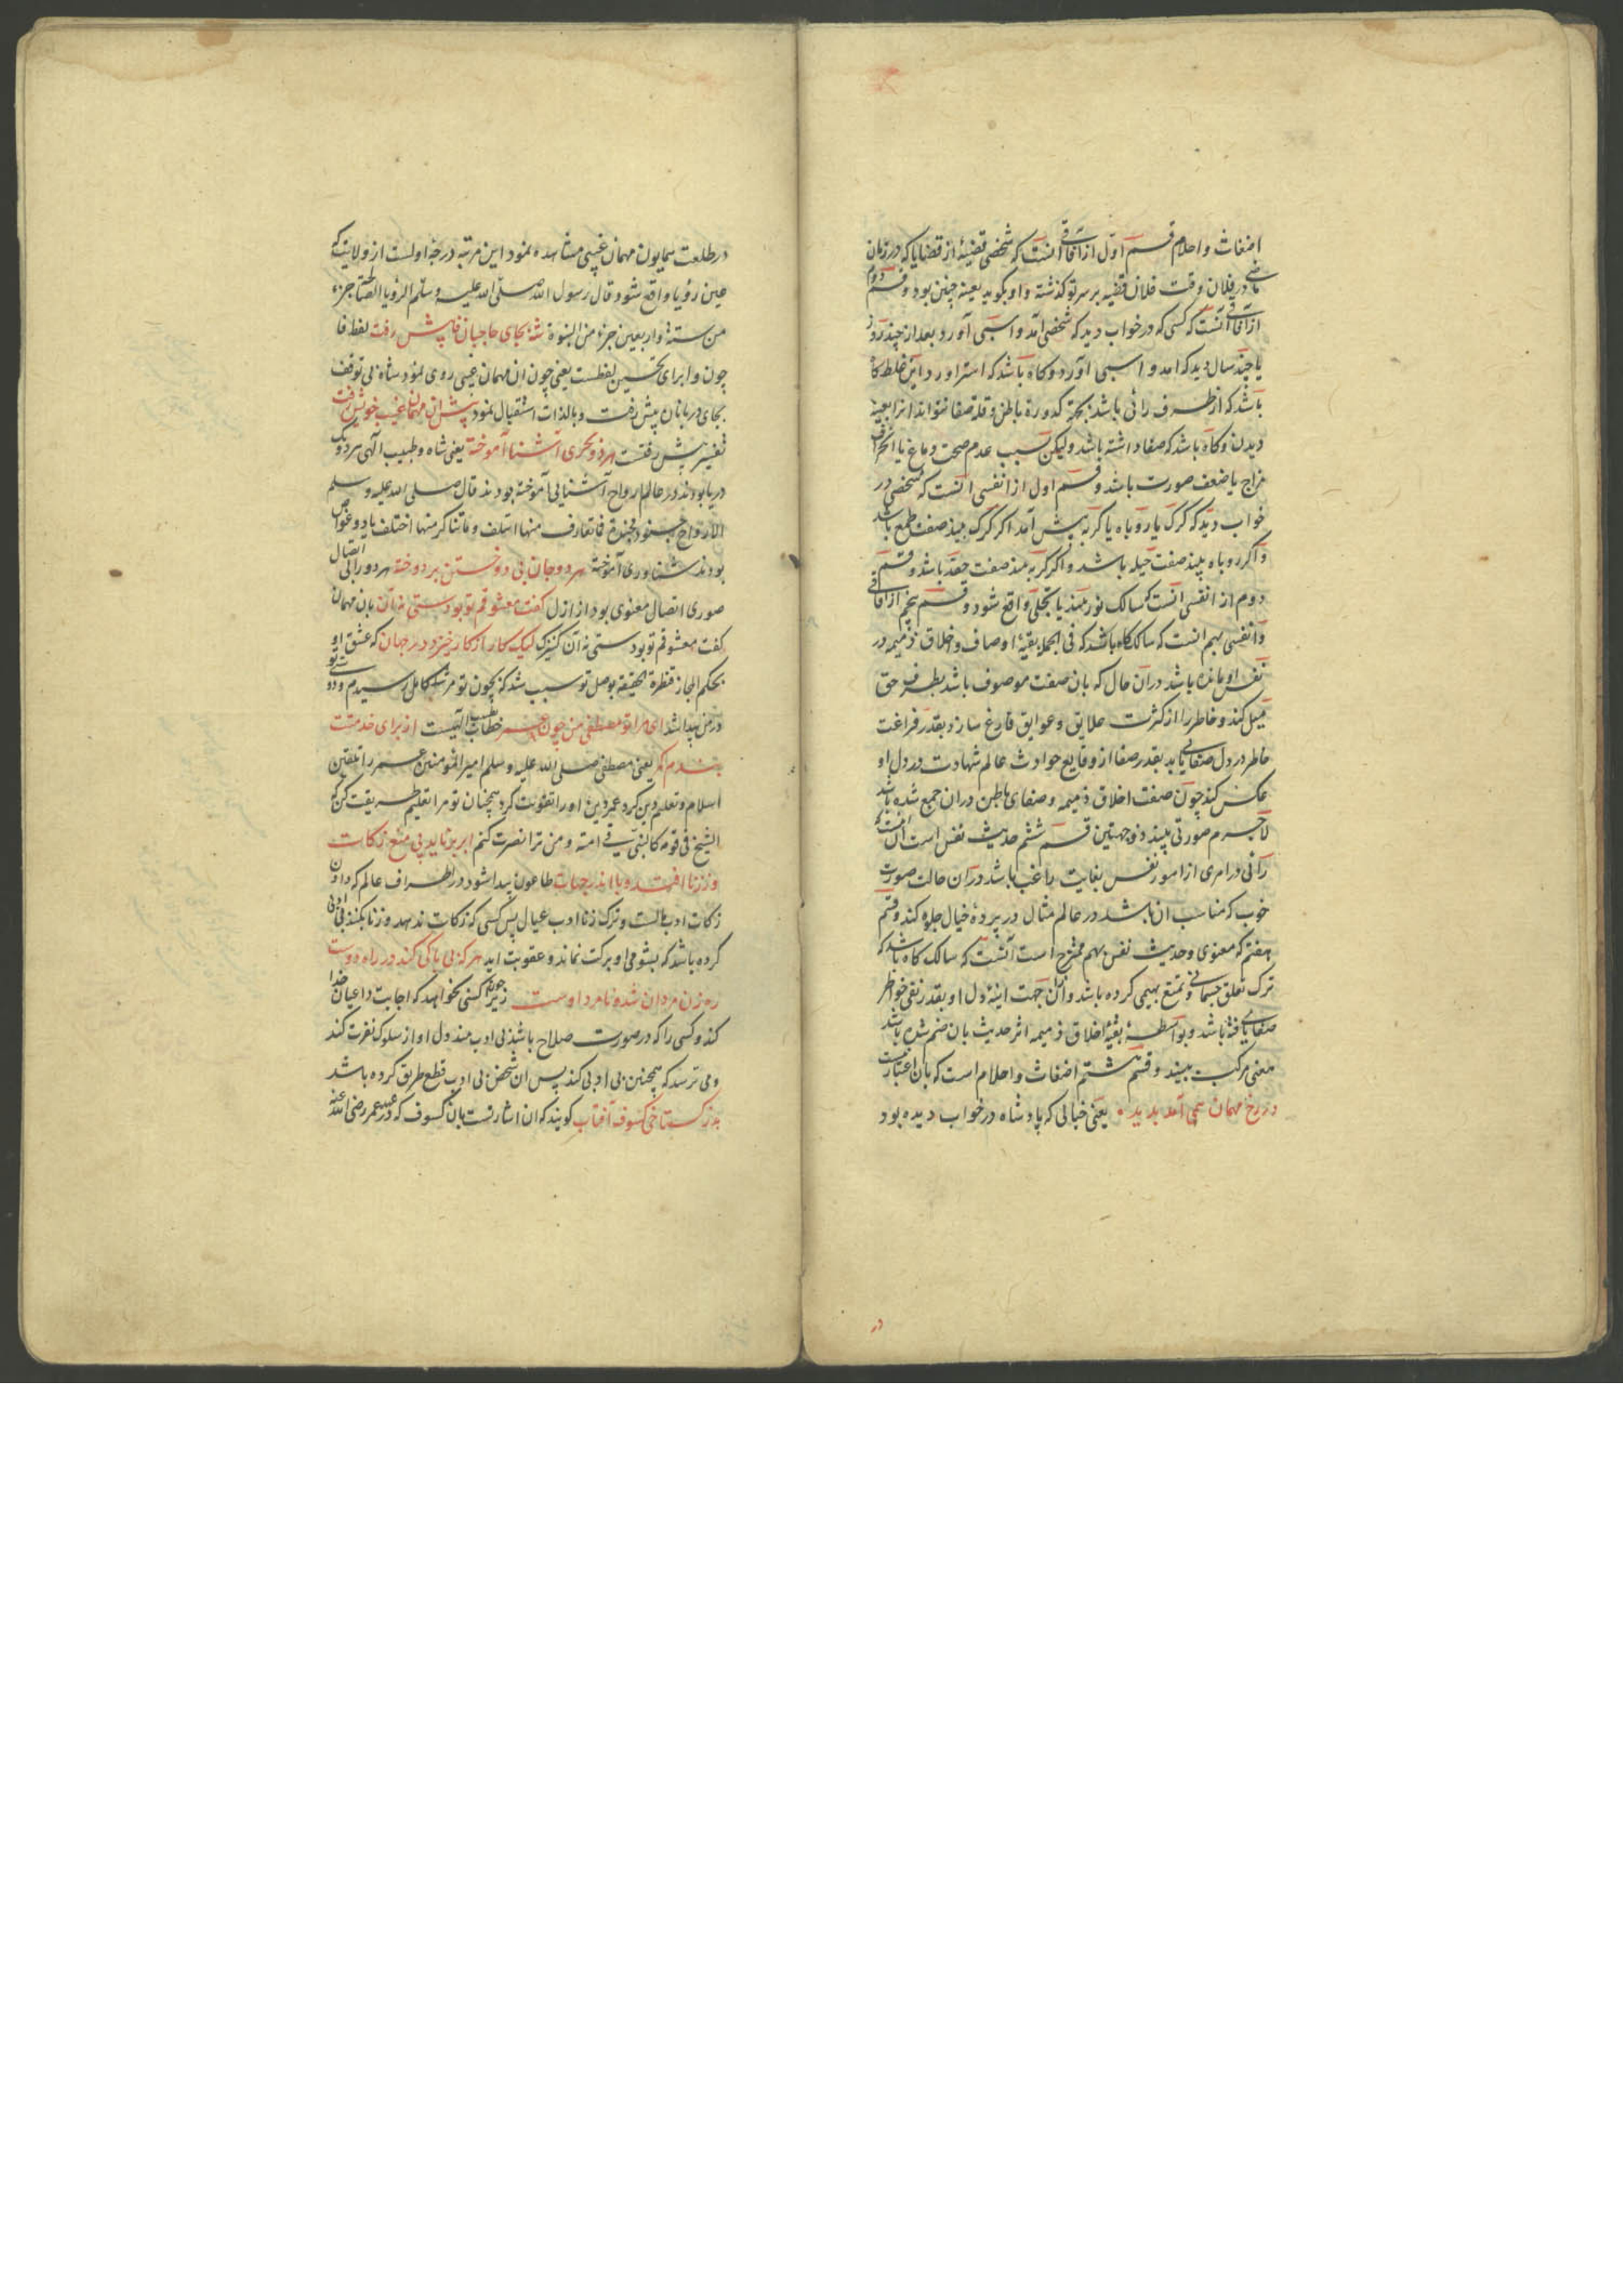 اضغاث واحلام قسم اول از آفاقی آنست که شخصی قضیهٔ از قضایا که در زمان
ماضی در فلان وقت فلان قضیه بر سر تو گذشته و او بگوید بعینه چنین بود و قسم دوم
از آفاقی آنست که کسی که در خواب دید که شخصی آمد و اسبی آورد و بعد از چند روز
یا چند سال دید که آمد و اسبی آورد و گاه باشد که استر آورد این غلط گاه
باشد که از طرف رائی باشد بجهة کدورة باطن و قلة صفا نتواند آنرا بعینه
دیدن و گاه باشد که صفا داشته باشد ولیکن بسبب عدم صحت دماغ یا انحراف
مزاج یا ضعف صورت باشد و قسم اول از انفسی آنست که شخصی در
خواب دید که گرگ یا روباه یا گربه پیش آمد اگر گرگ بیند صفت طمع باشد
و اگر روباه بیند صفت حیله باشد و اگر گربه بیند صفت حقد باشد و قسم
دوم از انفسی آنست که سالک نور بیند یا تجلی واقع شود و قسم پنجم از آفاقی
و انفسی بهم آنست که سالک گاه باشد که فی الجمله بقیهٔ اوصاف و اخلاق ذمیمه در
نفس او مانده باشد در آن حال که بان صفت موصوف باشد بطرف حق
میل کند و خاطر را از کثرت علایق و عوایق فارغ سازد و بقدر فراغت
خاطر در دل صفایی یابد بقدر صفا از وقایع حوادث عالم شهادت در دل او
عکس کند چون صفت اخلاق ذمیمه و صفای باطن در ان جمع شده باشد
لاجرم صورتی بیند ذو جهتین قسم ششم حدیث نفس است آنست که
رائی در امری از امور نفس بغایت راغب باشد در آن حالت صورت
خوب که مناسب ان باشد در عالم مثال در پردهٔ خیال جلوه کند و قسم
هفتم که معنوی و حدیث نفس بهم ممتزج است آنست که سالک گاه باشد که
ترک تعلق جسمانی و تمتع بهیمی کرده باشد و از آن جهت آینهٔ دل او بقدر نفی خواطر
صفایی یافته باشد و بواسطهٔ بقیهٔ اخلاق ذمیمه اثر حدیث بان ضم شده باشد
معنی مرکب بیند و قسم هشتم اضغاث و احلام است که بان اعتبار نیست
در رخ مهمان همی آمد پدید یعنی خیالی که پادشاه در خواب دیده بود
در
در طلعت همایون مهمان غیبی مشاهده نمود این مرتبه درجهٔ اولست از ولایت که
عین رؤیا واقع شود قال رسول الله صلی الله علیه وسلم الرؤیا الصالحة جزء
من ستة واربعین جزء من النبوة شه بجای حاجبان فا پیش رفت لفظ فا
چون وا برای تحسین لفظست یعنی چون ان مهمان غیبی روی نمود شاه بی توقف
بجای دربانان پیش رفت و بالذات استقبال نمود پیش ان مهمان غیب خویش رفت
تفسیر پیش رفتست هر دو بحری آشنا آموخته یعنی شاه و طبیب الهی هر دو یک
دریا بودند در عالم ارواح آشنایی آموخته بودند قال صلی الله علیه و سلم
الارواح جنود مجندة فما تعارف منها ائتلف وما تناکر منها اختلف یا دو غواص
بودند شناوری آموخته هر دو جان بی دوختن بر دوخته هر دو را بی اتصال
صوری اتصال معنوی بود از ازل گفت معشوقم تو بودستی نه آن بان مهمان
گفت معشوقم تو بودستی نه آن کنیزک لیک کار از کار خیزد در جهان که عشق او
بحکم المجاز قنطرة الحقیقه بوصل تو سبب شد که بچون تو مرشد کامل رسیدم و دوستی تو
در من پیدا شد ای مرا تو مصطفی من چون عمر خطاب بطبیب الهیست از برای خدمتت
بندم کمر یعنی مصطفی صلی الله علیه وسلم امیر المؤمنین عمر را تلقین
اسلام و تعلیم دین کرد عمر دین او را تقویت کرد همچنان تو مرا تعلیم طریقت کن که
الشیخ فی قومه کالنبی فی امته و من ترا نصرت کنم ابر برناید پی منع زکات
وز زنا افتد وبا اندر جهات طاعون پیدا شود در اطراف عالم که دادن
زکات ادب مالست و ترک زنا ادب عیال پس کسی که زکات ندهد و زنا بکند بی ادبی
کرده باشد که بشومی او برکت نماند و عقوبت اید هر که بی باکی کند در راه دوست
ره‌زن مردان شده نامرد اوست زیرا چون کسی نخواهد که اجابت داعیان خدا
کند و کسی را که در صورت صلاح باشد بی ادب بیند دل او از سلوک نفرت کند
و می ترسد که همچنین بی ادبی کند پس ان شخص بی ادب قطع طریق کرده باشد
بد ز گستاخی کسوف آفتاب گویند که ان اشارتست بان کسوف که در عهد عمر رضی الله عنه